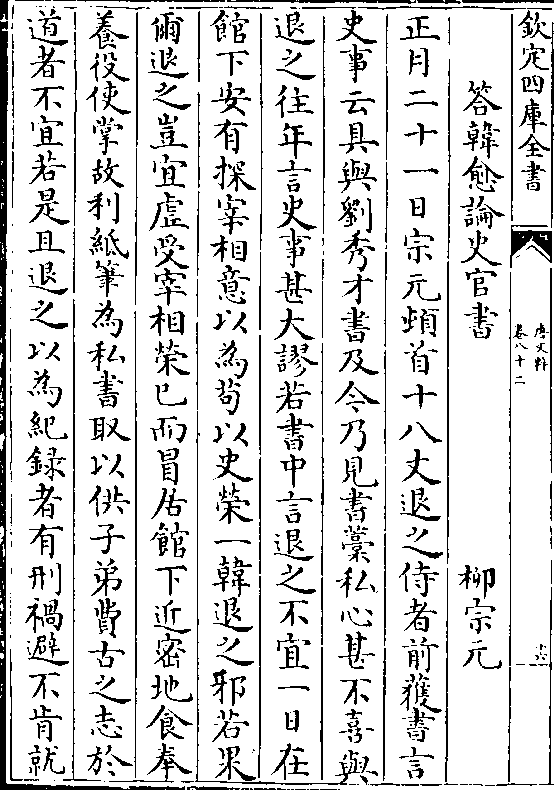 欽定四庫全書
唐文粹
卷八十二
十六
答韓愈論史官書 柳宗元
正月二十一日宗元頓首十八丈退之侍者前獲書言
史事云具與劉秀才書及今乃見書藁私心甚不喜與
退之往年言史事甚大謬若書中言退之不宜一日在
館下安有探宰相意以為苟以史榮一韓退之邪若果
爾退之豈宜虛受宰相榮已而冒居館下近密地食奉
養役使掌故利紙筆為私書取以供子弟費古之志於
道者不宜若是且退之以為紀錄者有刑禍避不肯就